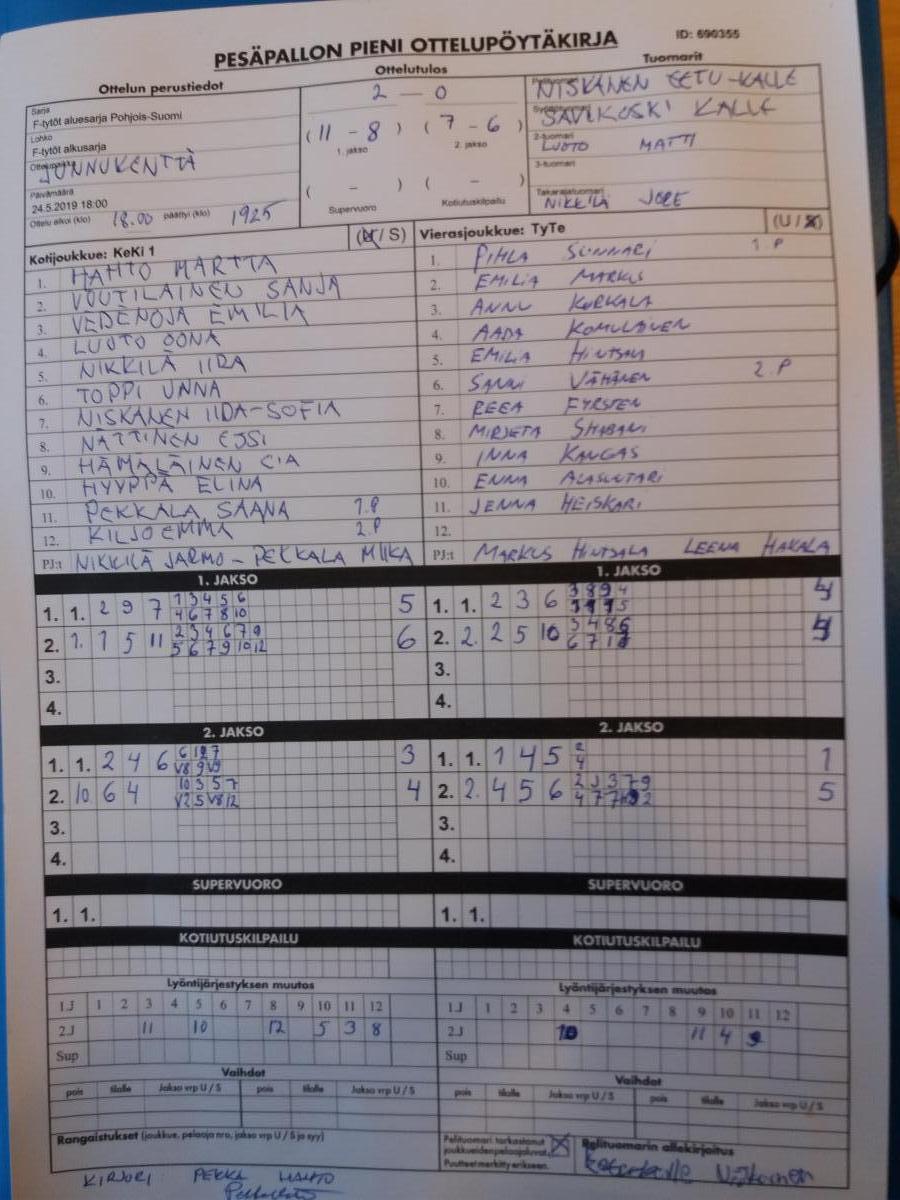 PESÄPALLON PIENI OTTELUPÖYTÄKIRJA
ID: 690355
Ottelun perustiedot
Sarja
F-tytöt aluesarja Pohjois-Suomi
Lohko
F-tytöt alkusarja
Ottelupaikka
JUNNUKENTTÄ
Päivämäärä
24.5.2019 18:00
Ottelu alkoi (klo) 18.00 päättyi (klo) 1925
Ottelutulos
2 - 0
(11 - 8) (7 - 6)
1. jakso 2. jakso
( - ) ( - )
Supervuoro Kotiutuskilpailu
Tuomarit
Pelituomari
NISKANEN EETU-KALLE
SAVIKOSKI KALLE
2-tuomari
LUOTO MATTI
3-tuomari
Takarajatuomari
NIKKILÄ JORE
Kotijoukkue: KeKi 1 (U / S)
1. HAHTO MARTTA
2. VOUTILAINEN SANJA
3. VEDENOJA EMILIA
4. LUOTO OONA
5. NIKKILÄ IIRA
6. TOPPI UNNA
7. NISKANEN IIDA-SOFIA
8. NÄTTINEN ESSI
9. HÄMÄLÄINEN EIA
10. HYYPPÄ ELINA
11. PEKKALA SAANA 1.P
12. KILJO EMMA 2.P
PJ:t NIKKILÄ JARMO - PEKKALA MIIKA
Vierasjoukkue: TyTe (U / S)
1. PIHLA SUNNARI 1.P
2. EMILIA MARKUS
3. ANNU KORKALA
4. AADA KOMULAINEN
5. EMILIA HINTSALA
6. SANNI VÄHÄNEN 2.P
7. REEA FYRSTEN
8. MIRJETA SHABANI
9. INNA KANGAS
10. ENNA ALASUUTARI
11. JENNA HEISKARI
12.
PJ:t MARKUS HINTSALA LEENA HAKALA
1. JAKSO
1. 1. 2 9 7 1 3 4 5 6 5
4 6 7 8 10
2. 1. 1 5 11 2 3 4 6 7 9 6
5 6 7 9 10 12
3.
4.
1. JAKSO
1. 1. 2 3 6 3 8 9 4 4
2. 2. 2 5 10 3 4 8 6 4
3.
4.
2. JAKSO
1. 1. 2 4 6 3
2. 10 6 4 10 3 5 7 4
V2 5 V8 12
3.
4.
2. JAKSO
1. 1. 1 4 5 2 1
4
2. 2. 4 5 6 2 3 3 7 9 5
3.
4.
SUPERVUORO
1. 1.
SUPERVUORO
1. 1.
KOTIUTUSKILPAILU
KOTIUTUSKILPAILU
Lyöntijärjestyksen muutos
1J 1 2 3 4 5 6 7 8 9 10 11 12
2J 11 10 12 5 3 8
Sup
Lyöntijärjestyksen muutos
1J 1 2 3 4 5 6 7 8 9 10 11 12
2J 10 11 4 9
Sup
Vaihdot
pois tilalle Jakso vrp U / S pois tilalle Jakso vrp U / S
Vaihdot
pois tilalle Jakso vrp U / S pois tilalle Jakso vrp U / S
Rangaistukset (joukkue, pelaaja nro, jakso vrp U / S ja syy)
Pelituomari tarkastanut
joukkueiden pelaajaluvat.
Puutteet merkitty erikseen.
Pelituomarin allekirjoitus
KIRJURI PEKKA HAHTO